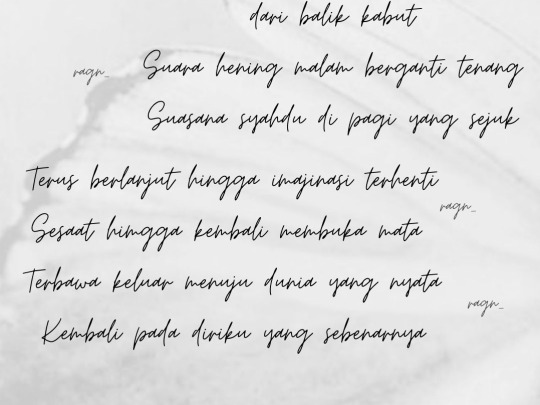 dari balik kabut
ragn_
Suara hening malam berganti tenang
Suasana syahdu di pagi yang sejuk
Terus berlanjut hingga imajinasi terhenti
ragn_
Sesaat himgga kembali membuka mata
Terbawa keluar menuju dunia yang nyata
ragn_
Kembali pada diriku yang sebenarnya